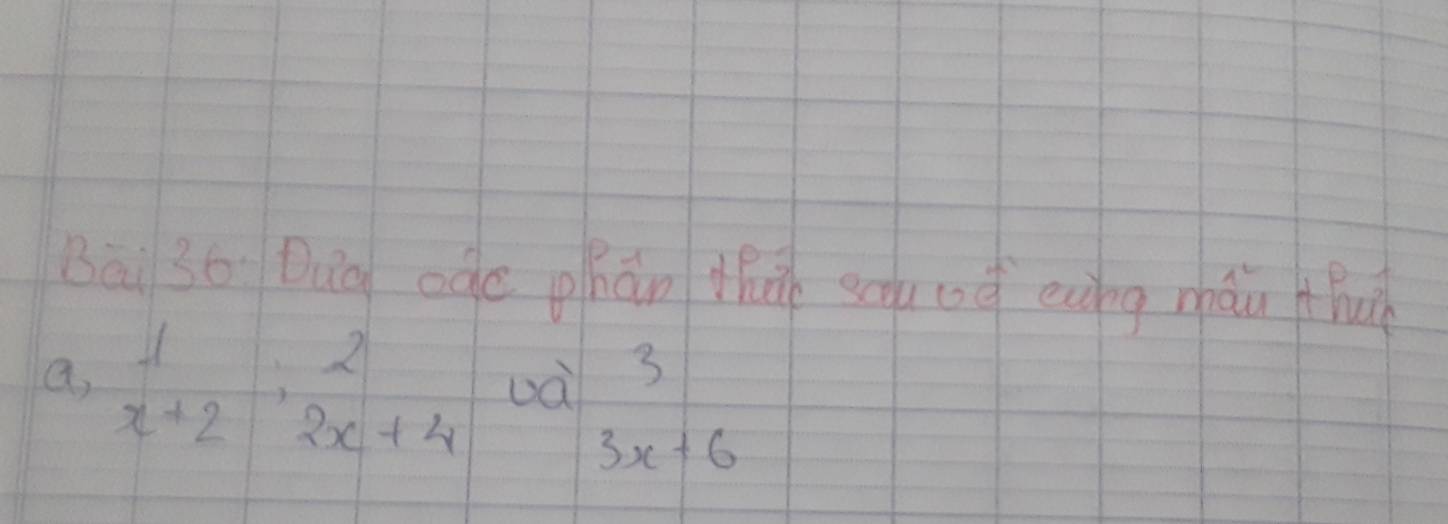 Bài 36: Đưa các phân thức sau về cùng mẫu thức
a, 1/x+2 ; 2/2x+4 và 3/3x+6